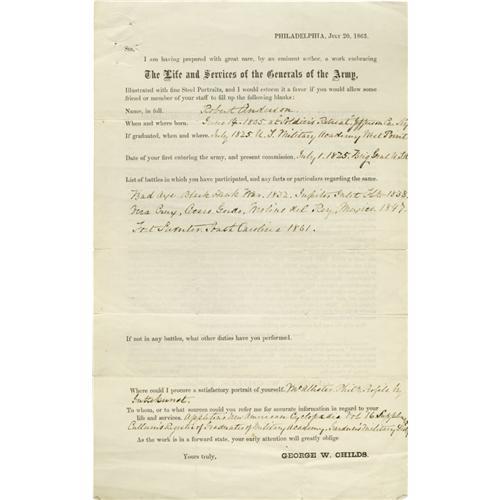 PHILADELPHIA, JULY 20, 1863.
SIR,
I am having prepared with great care, by an eminent author, a work embracing
The Life and Services of the Generals of the Army,
Illustrated with fine Steel Portraits, and I would esteem it a favor if you would allow some
friend or member of your staff to fill up the following blanks:
Name, in full. Robert Anderson
When and where born. June 14. 1805 at Soldier's Retreat Jefferson Co. Ky
If graduated, when and where. July 1825 U. S. Military Academy West Point
Date of your first entering the army, and present commission. July 1. 1825. Brig Genl U.S.A
List of battles in which you have participated, and any facts or particulars regarding the same.
Bad Axe Black Hawk War. 1832. Jupiter Inlet Fla 1838.
Vera Cruz, Cerro Gordo, Molino del Rey, Mexico 1847.
Fort Sumter, South Carolina 1861.
If not in any battles, what other duties have you performed.
Where could I procure a satisfactory portrait of yourself. McAllister Phila
Gutekunst.
To whom, or to what sources could you refer me for accurate information in regard to your
life and services. Appleton's New American Cyclopedia Vol 16
Cullum's Register of Graduates of Military Academy. Gardner's Military Dicty
As the work is in a forward state, your early attention will greatly oblige
Yours truly, GEORGE W. CHILDS.